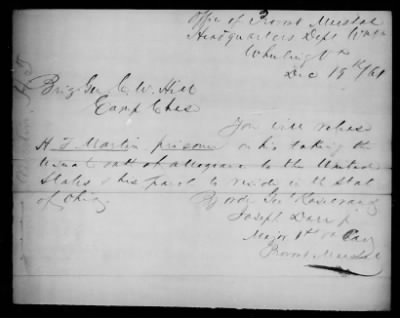 Office of Provost Marshal
Headquarters Dept W Va
Wheeling Va
Dec 19th /61
Brig Gen C. W. Hill
Camp Chase
You will release
H F Martin prisoner on his taking the
usual oath of allegiance to the United
States & his parol to reside in the State
of Ohio
By order Gen Rosecrans
Joseph Darr Jr
Major 1st Va Cav
Provost Marshal